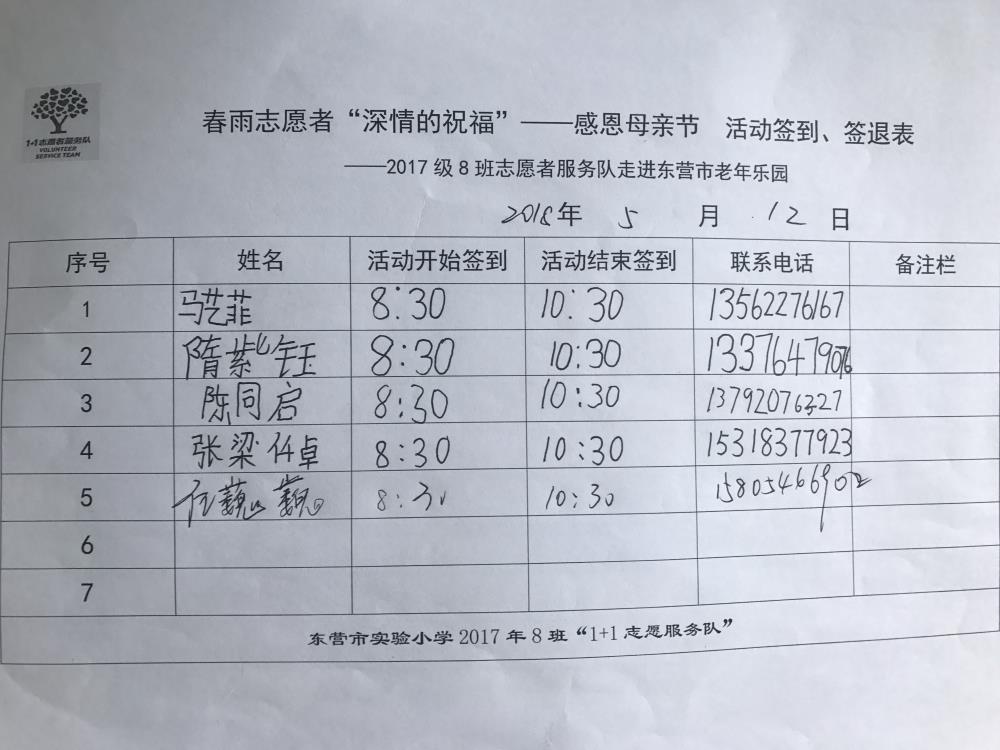 1+1志愿者服务队
VOLUNTEER
SERVICE TEAM
春雨志愿者“深情的祝福”——感恩母亲节 活动签到、签退表
——2017级8班志愿者服务队走进东营市老年乐园
2018年 5 月 12 日
序号 姓名 活动开始签到 活动结束签到 联系电话 备注栏
1 马艺菲 8:30 10:30 13562276167
2 隋紫钰 8:30 10:30 13376479076
3 陈同启 8:30 10:30 13792076327
4 张梁仟卓 8:30 10:30 15318377923
5 任巍巍 8:30 10:30 15805466902
6
7
东营市实验小学2017年8班“1+1志愿服务队”